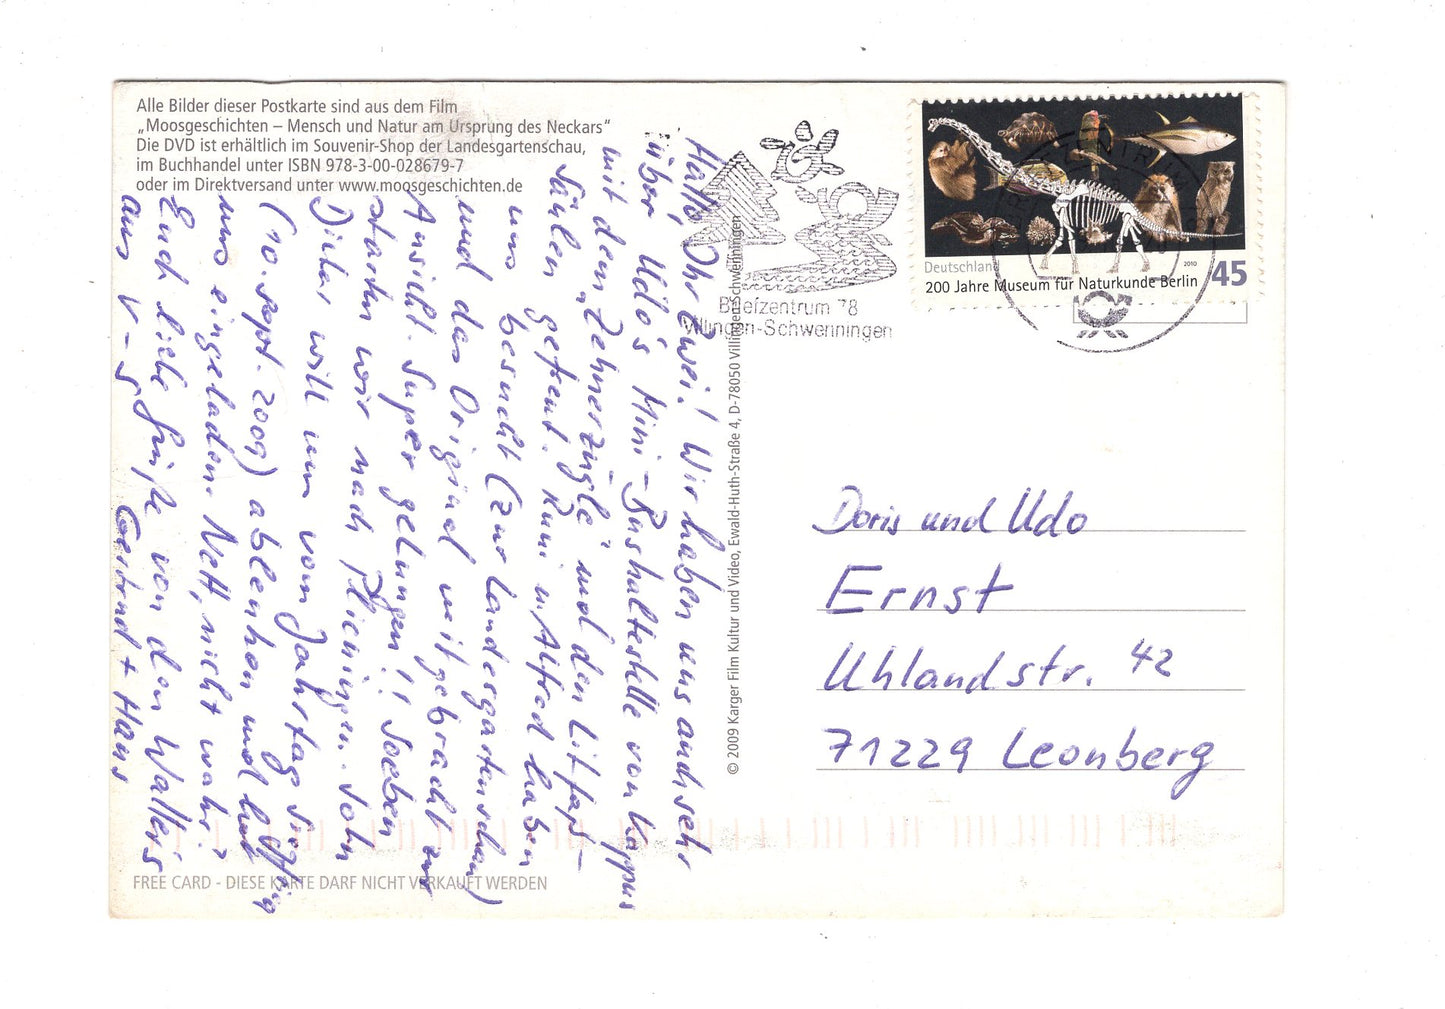 Alle Bilder dieser Postkarte sind aus dem Film
„Moosgeschichten – Mensch und Natur am Ursprung des Neckars“
Die DVD ist erhältlich im Souvenir-Shop der Landesgartenschau,
im Buchhandel unter ISBN 978-3-00-028679-7
oder im Direktversand unter www.moosgeschichten.de
Hallo, Ihr Zwei! Wir haben uns auch sehr
über Udo's Mini-Bushaltestelle von Kappus
mit dem „Zehnerzügle“ und den Litfaß-
säulen gefreut. Runi u. Alfred haben
uns besucht (zur Landesgartenschau)
und das Original mitgebracht zur
Ansicht. Super gelungen!! Soeben
starten wir nach Plieningen. Sohn
Dieter will uns vom Jahrtag
(10. Sept. 2009) ablenken und hat
uns eingeladen. Nett, nicht wahr?
Euch liebe Grüße von den Waller's
aus V-S
Gertrud + Hans
© 2009 Karger Film Kultur und Video, Ewald-Huth-Straße 4, D-78050 Villingen-Schwenningen
Briefzentrum 78
Villingen-Schwenningen
Deutschland
2010
45
200 Jahre Museum für Naturkunde Berlin
Doris und Udo
Ernst
Uhlandstr. 42
71229 Leonberg
FREE CARD - DIESE KARTE DARF NICHT VERKAUFT WERDEN